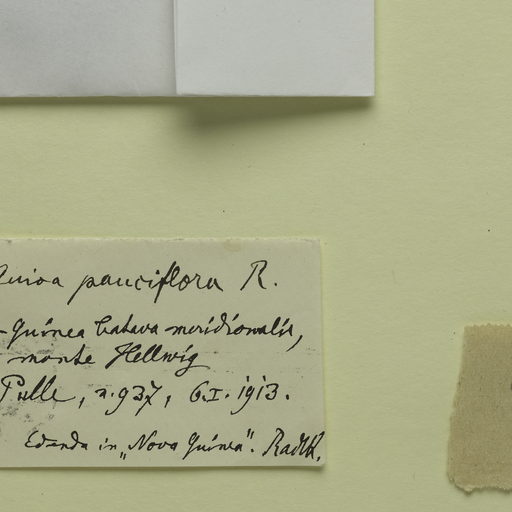 Guioa pauciflora R.
-Guinea batava meridionalis,
monte Hellwig
Pulle, n.937, 6.I.1913.
Edenda in „Nova Guinea". Radlk.